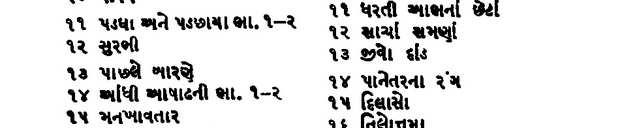 ૧૧ પડઘા અને પડછાયા ભા. ૧–૨
૧૨ સુરભી
૧૩ પાછલે બારણે
૧૪ આંધી અષાઢની ભા. ૧–૨
૧૫ મનખાવતાર
૧૧ ધરતી આભનાં છેટાં
૧૨ સાચાં સમણાં
૧૩ જીવો દાંડ
૧૪ પાનેતરના રંગ
૧૫ દિલાસો
૧૬ તિલોત્તમા